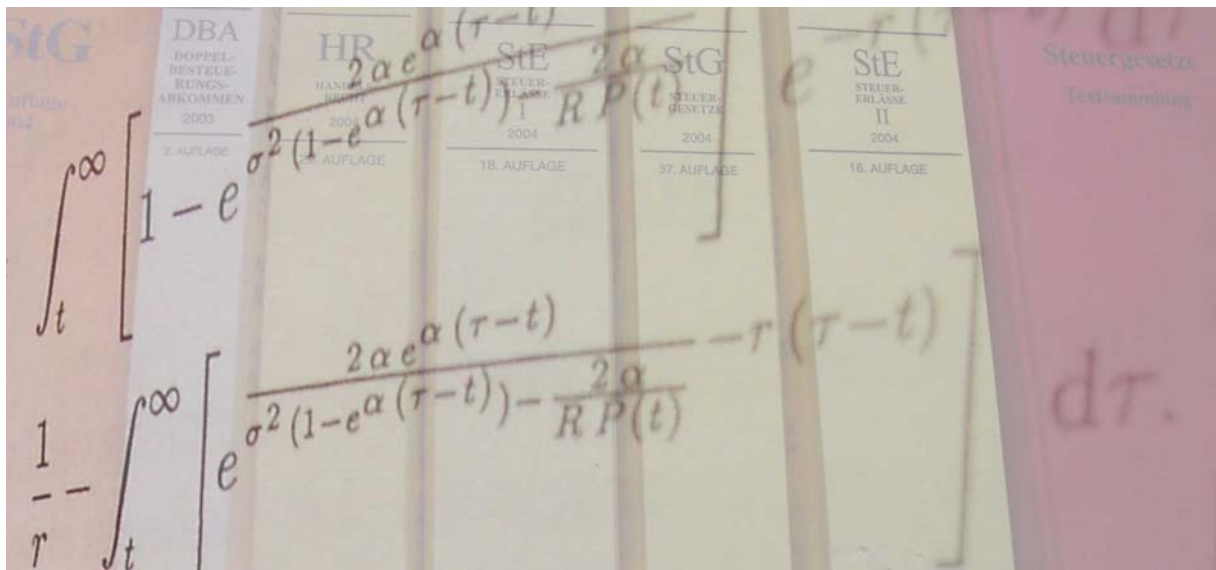 StG
Auflage
2004
DBA
DOPPEL-
BESTEUE-
RUNGS-
ABKOMMEN
2003
2. AUFLAGE
HR
HANDELS-
RECHT
2004
AUFLAGE
StE
STEUER-
ERLÄSSE
I
2004
18. AUFLAGE
StG
STEUER-
GESETZE
2004
37. AUFLAGE
StE
STEUER-
ERLÄSSE
II
2004
18. AUFLAGE
Steuergesetze
Textsammlung
∫_t^∞ [1 − e^{\frac{2 α e^{α (τ−t)}}{σ^2 (1−e^{α (τ−t)}) − \frac{2 α}{R P(t)}}}] e^{−r (τ−t)} dτ
\frac{1}{r} − ∫_t^∞ [e^{\frac{2 α e^{α (τ−t)}}{σ^2 (1−e^{α (τ−t)}) − \frac{2 α}{R P(t)}} − r (τ−t)}] dτ.